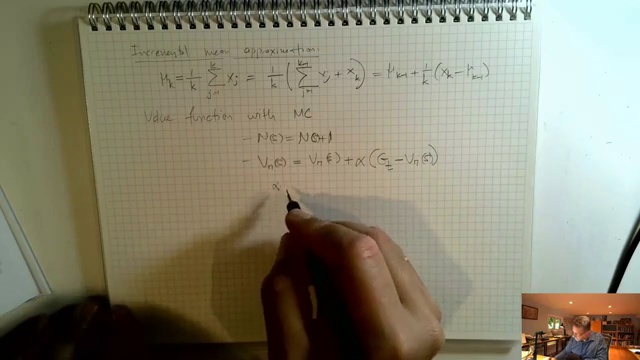 Incremental mean approximation:
μ_k = 1/k ∑_{j=1}^{k} x_j = 1/k ( ∑_{j=1}^{k-1} x_j + x_k ) = μ_{k-1} + 1/k ( x_k − μ_{k-1} )
Value function with MC
− N(s) = N(s)+1
− V_π(s) = V_π(s) + α ( G_t − V_π(s) )
α